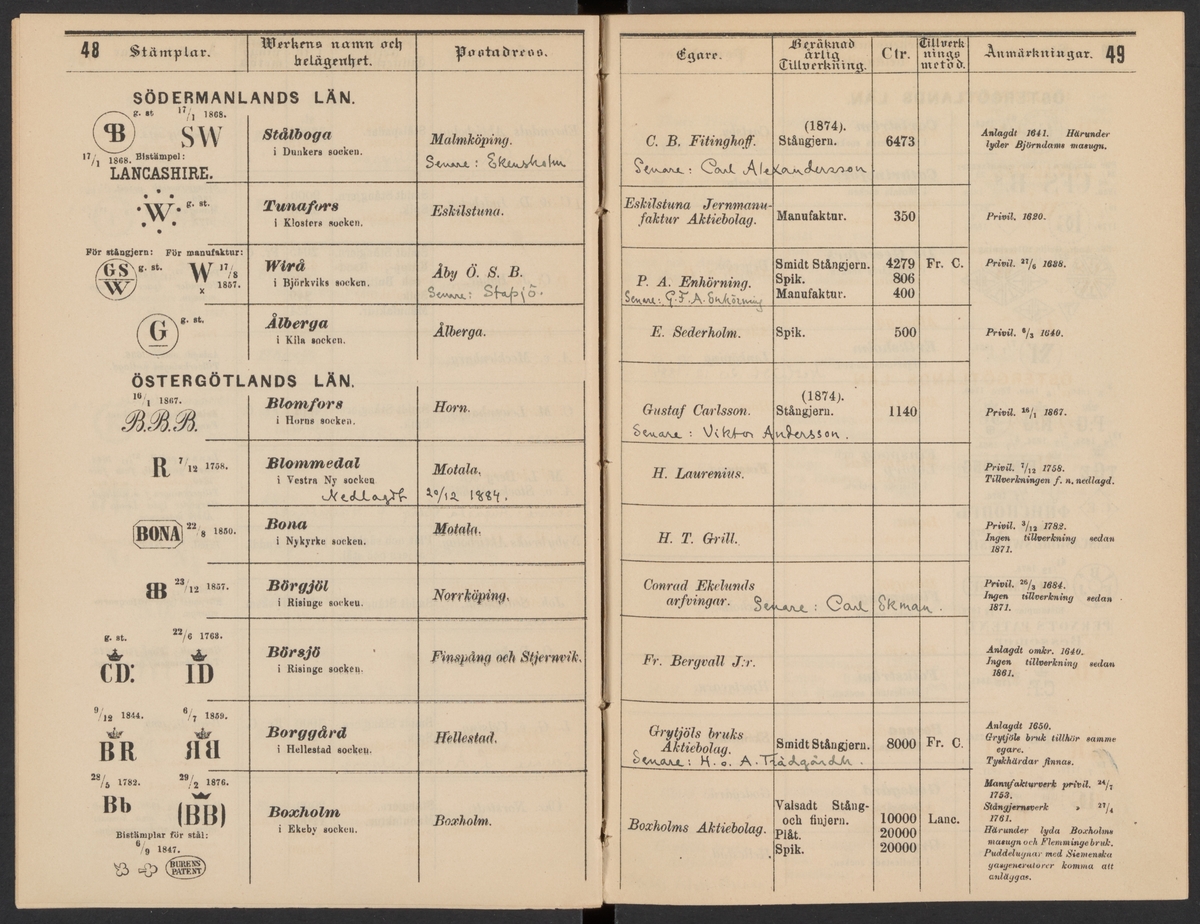 48 Stämplar. Werkens namn och belägenhet. Postadress.
Egare. Beräknad årlig Tillverkning. Ctr. Tillverknings metod. Anmärkningar. 49
SÖDERMANLANDS LÄN.
g. st 17/1 1868.
B SW
17/1 1868. Bistämpel:
LANCASHIRE.
Stålboga
i Dunkers socken.
Malmköping.
Senare: Ekensholm
C. B. Fitinghoff.
Senare: Carl Alexandersson.
(1874).
Stångjern. 6473
Anlagdt 1641. Härunder
lyder Björndams masugn.
W g. st.
Tunafors
i Klosters socken.
Eskilstuna.
Eskilstuna Jernmanu-
faktur Aktiebolag.
Manufaktur. 350
Privil. 1620.
För stångjern: För manufaktur:
GS W g. st. W 17/8 1857.
x
Wirå
i Björkviks socken.
Åby Ö. S. B.
Senare: Stafsjö.
P. A. Enhörning.
Senare: G. F. A. Enhörning
Smidt Stångjern. 4279 Fr. C.
Spik. 806
Manufaktur. 400
Privil. 27/6 1688.
G g. st.
Ålberga
i Kila socken.
Ålberga.
E. Sederholm.
Spik. 500
Privil. 6/3 1640.
ÖSTERGÖTLANDS LÄN.
16/1 1867.
B.B.B.
Blomfors
i Horns socken.
Horn.
Gustaf Carlsson.
Senare: Viktor Andersson.
(1874).
Stångjern. 1140
Privil. 16/1 1867.
R 7/12 1758.
Blommedal
i Vestra Ny socken
Nedlagdt 20/12 1884.
Motala.
H. Laurenius.
Privil. 7/12 1758.
Tillverkningen f. n. nedlagd.
BONA 22/8 1850.
Bona
i Nykyrke socken.
Motala.
H. T. Grill.
Privil. 3/12 1782.
Ingen tillverkning sedan
1871.
BB 23/12 1857.
Börgjöl
i Risinge socken.
Norrköping.
Conrad Ekelunds
arfvingar. Senare: Carl Ekman.
Privil. 26/3 1684.
Ingen tillverkning sedan
1871.
g. st. 22/6 1768.
CD: ID
Börsjö
i Risinge socken.
Finspång och Stjernvik.
Fr. Bergvall J:r.
Anlagdt omkr. 1640.
Ingen tillverkning sedan
1861.
9/12 1844. 6/7 1859.
BR BB
Borggård
i Hellestad socken.
Hellestad.
Grytjöls bruks
Aktiebolag.
Senare: H. o. A. Trädgårdh.
Smidt Stångjern. 8000 Fr. C.
Anlagdt 1650.
Grytjöls bruk tillhör samme
egare.
Tyskhärdar finnas.
28/5 1782. 29/2 1876.
Bb (BB)
Bistämplar för stål:
6/9 1847.
BURENS
PATENT
Boxholm
i Ekeby socken.
Boxholm.
Boxholms Aktiebolag.
Valsadt Stång-
och finjern. 10000 Lanc.
Plåt. 20000
Spik. 20000
Manufakturverk privil. 24/7
1753.
Stångjernsverk „ 27/4
1761.
Härunder lyda Boxholms
masugn och Flemminge bruk.
Puddelugnar med Siemenska
gasgeneratorer komma att
anläggas.